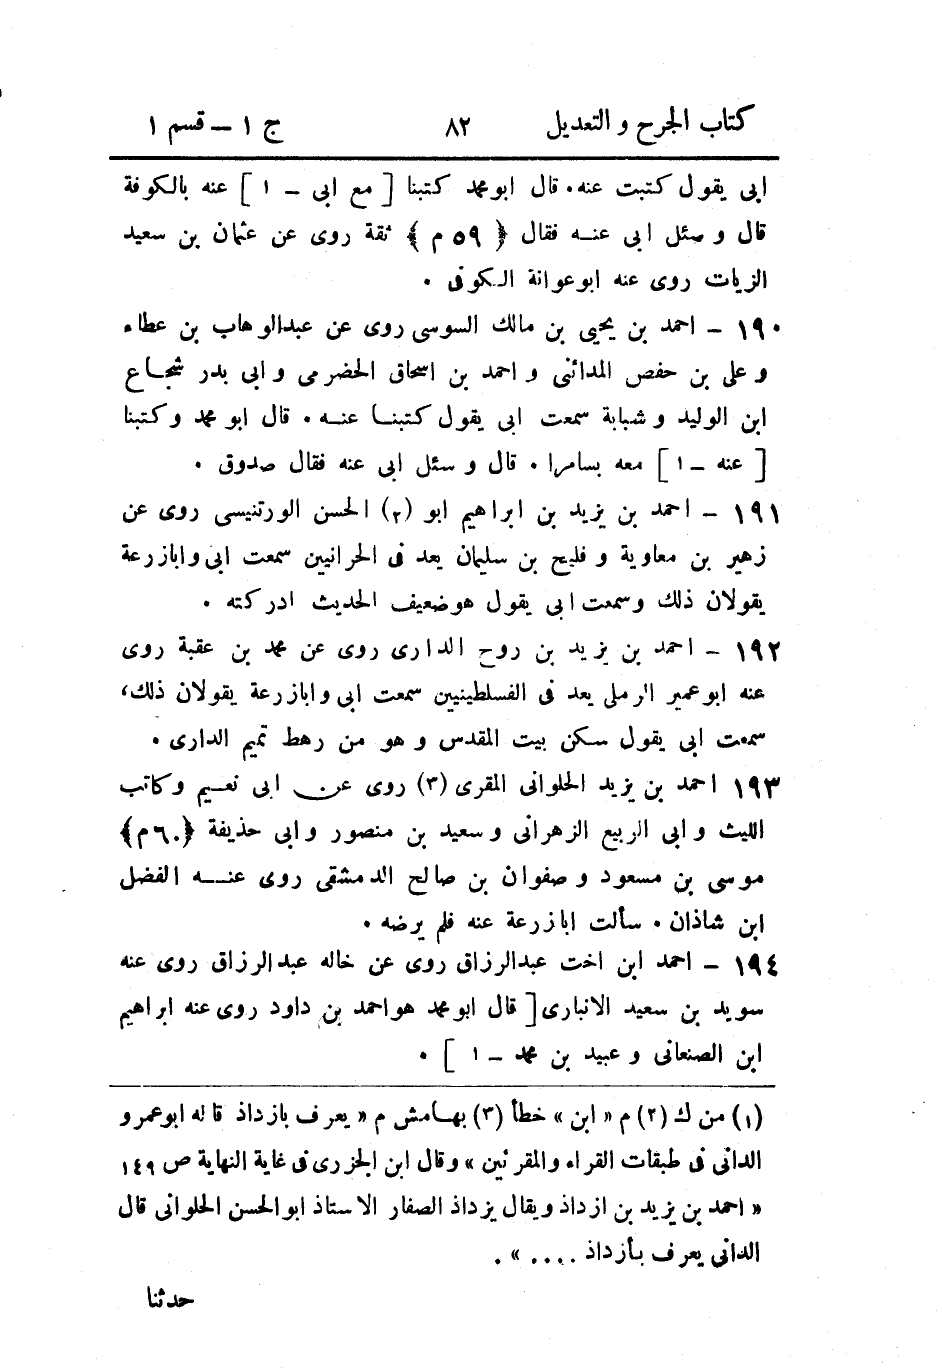 كتاب الجرح و التعديل ٨٢ ج ١ – قسم ١
ابى يقول كتبت عنه. قال ابو محمد كتبنا [ مع ابى – ١ ] عنه بالكوفة
قال و سئل ابى عنه فقال ﴿ ٥٩ م ﴾ ثقة روى عن عثمان بن سعيد
الزيات روى عنه ابوعوانة الكوفى .
١٩٠ – احمد بن يحيى بن مالك السوسى روى عن عبدالوهاب بن عطاء
و على بن حفص المدائنى و احمد بن اسحاق الحضرمى و ابى بدر شجاع
ابن الوليد و شبابة سمعت ابى يقول كتبنا عنه . قال ابو محمد و كتبنا
[ عنه – ١ ] معه بسامرا . قال و سئل ابى عنه فقال صدوق .
١٩١ – احمد بن يزيد بن ابراهيم ابو (٢) الحسن الورتنيسى روى عن
زهير بن معاوية و فليح بن سليمان يعد فى الحرانيين سمعت ابى و ابا زرعة
يقولان ذلك وسمعت ابى يقول هو ضعيف الحديث ادركته .
١٩٢ – احمد بن يزيد بن روح الدارى روى عن محمد بن عقبة روى
عنه ابو عمير الرملى يعد فى الفسلطينيين سمعت ابى و ابا زرعة يقولان ذلك،
سمعت ابى يقول سكن بيت المقدس و هو من رهط تميم الدارى .
١٩٣ احمد بن يزيد الحلوانى المقرى (٣) روى عن ابى نعيم و كاتب
الليث و ابى الربيع الزهرانى و سعيد بن منصور و ابى حذيفة ﴿ ٦٠ م ﴾
موسى بن مسعود و صفوان بن صالح الدمشقى روى عنه الفضل
ابن شاذان . سألت ابا زرعة عنه فلم يرضه .
١٩٤ – احمد ابن اخت عبدالرزاق روى عن خاله عبدالرزاق روى عنه
سويد بن سعيد الانبارى [ قال ابو محمد هو احمد بن داود روى عنه ابراهيم
ابن الصنعانى و عبيد بن محمد – ١ ] .
(١) من ك (٢) م « ابن » خطأ (٣) بهامش م « يعرف بازداذ قاله ابوعمرو
الدانى فى طبقات القراء والمقرئين » وقال ابن الجزرى فى غاية النهاية ص ١٤٩
« احمد بن يزيد بن ازداذ ويقال يزداذ الصفار الاستاذ ابوالحسن الحلوانى قال
الدانى يعرف بأزداذ .... » .
حدثنا